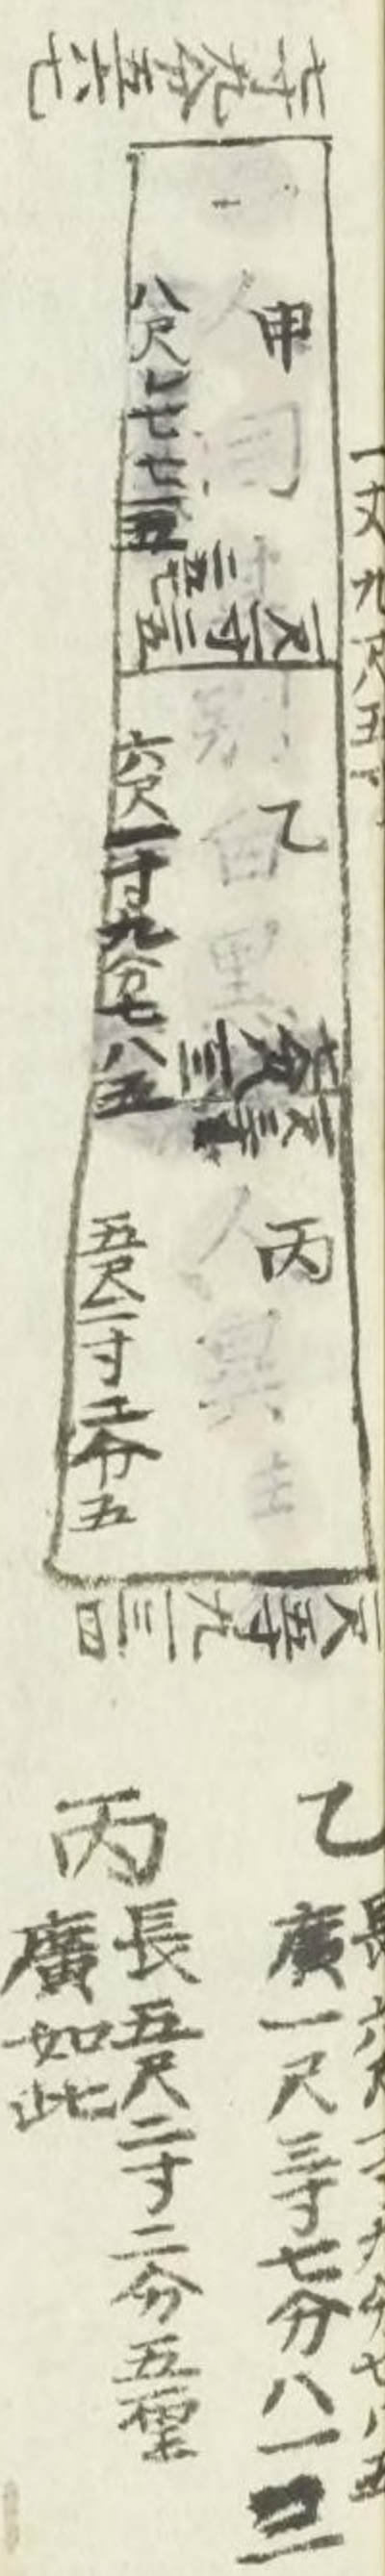 七寸九分五六七
一丈九尺五寸
甲
八尺七七五
一尺一寸
二五七二五
乙
六尺一寸九分七八五
一尺三寸
七分八一三
丙
五尺二寸二分五
一尺五寸九一三四
乙
長六尺一寸九分七八五
廣一尺三寸七分八一三
丙
長五尺二寸二分五厘
廣如此